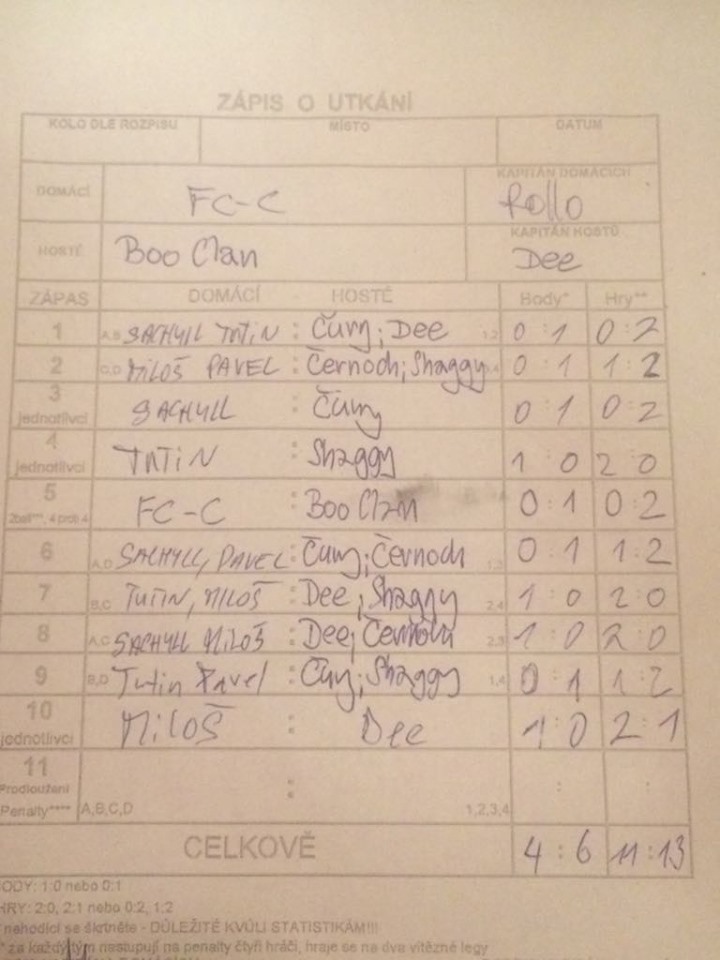 ZÁPIS O UTKÁNÍ
KOLO DLE ROZPISU MÍSTO DATUM
DOMÁCÍ FC-C KAPITÁN DOMÁCÍCH Rollo
HOSTÉ Boo Clan KAPITÁN HOSTŮ Dee
ZÁPAS DOMÁCÍ - HOSTÉ Body* Hry**
1 A,B SACHYLL TNTIN : Čuny; Dee 1,2 0 : 1 0 : 2
2 C,D MILOŠ PAVEL : Černoch; Shaggy 0 : 1 1 : 2
3 jednotlivci SACHYLL : Čuny 0 : 1 0 : 2
4 jednotlivci TNTIN : Shaggy 1 : 0 2 : 0
5 2ball***, 4 proti 4 FC-C : Boo Clan 0 : 1 0 : 2
6 A,D SACHYLL, PAVEL : Čuny; Černoch 1,3 0 : 1 1 : 2
7 B,C TUTIN, MILOŠ : Dee; Shaggy 2,4 1 : 0 2 : 0
8 A,C SACHYLL MILOŠ : Dee; Černoch 2,3 1 : 0 2 : 0
9 B,D Tutin Pavel : Čuny; Shaggy 1,4 0 : 1 1 : 2
10 jednotlivci MILOŠ : Dee 1 : 0 2 : 1
11 Prodloužení : : :
Penalty**** A,B,C,D 1,2,3,4
CELKOVĚ 4 : 6 11 : 13
BODY: 1:0 nebo 0:1
HRY: 2:0, 2:1 nebo 0:2, 1:2
nehodící se škrtněte - DŮLEŽITÉ KVŮLI STATISTIKÁM!!!
* za každý tým nastupují na penalty čtyři hráči, hraje se na dva vítězné legy